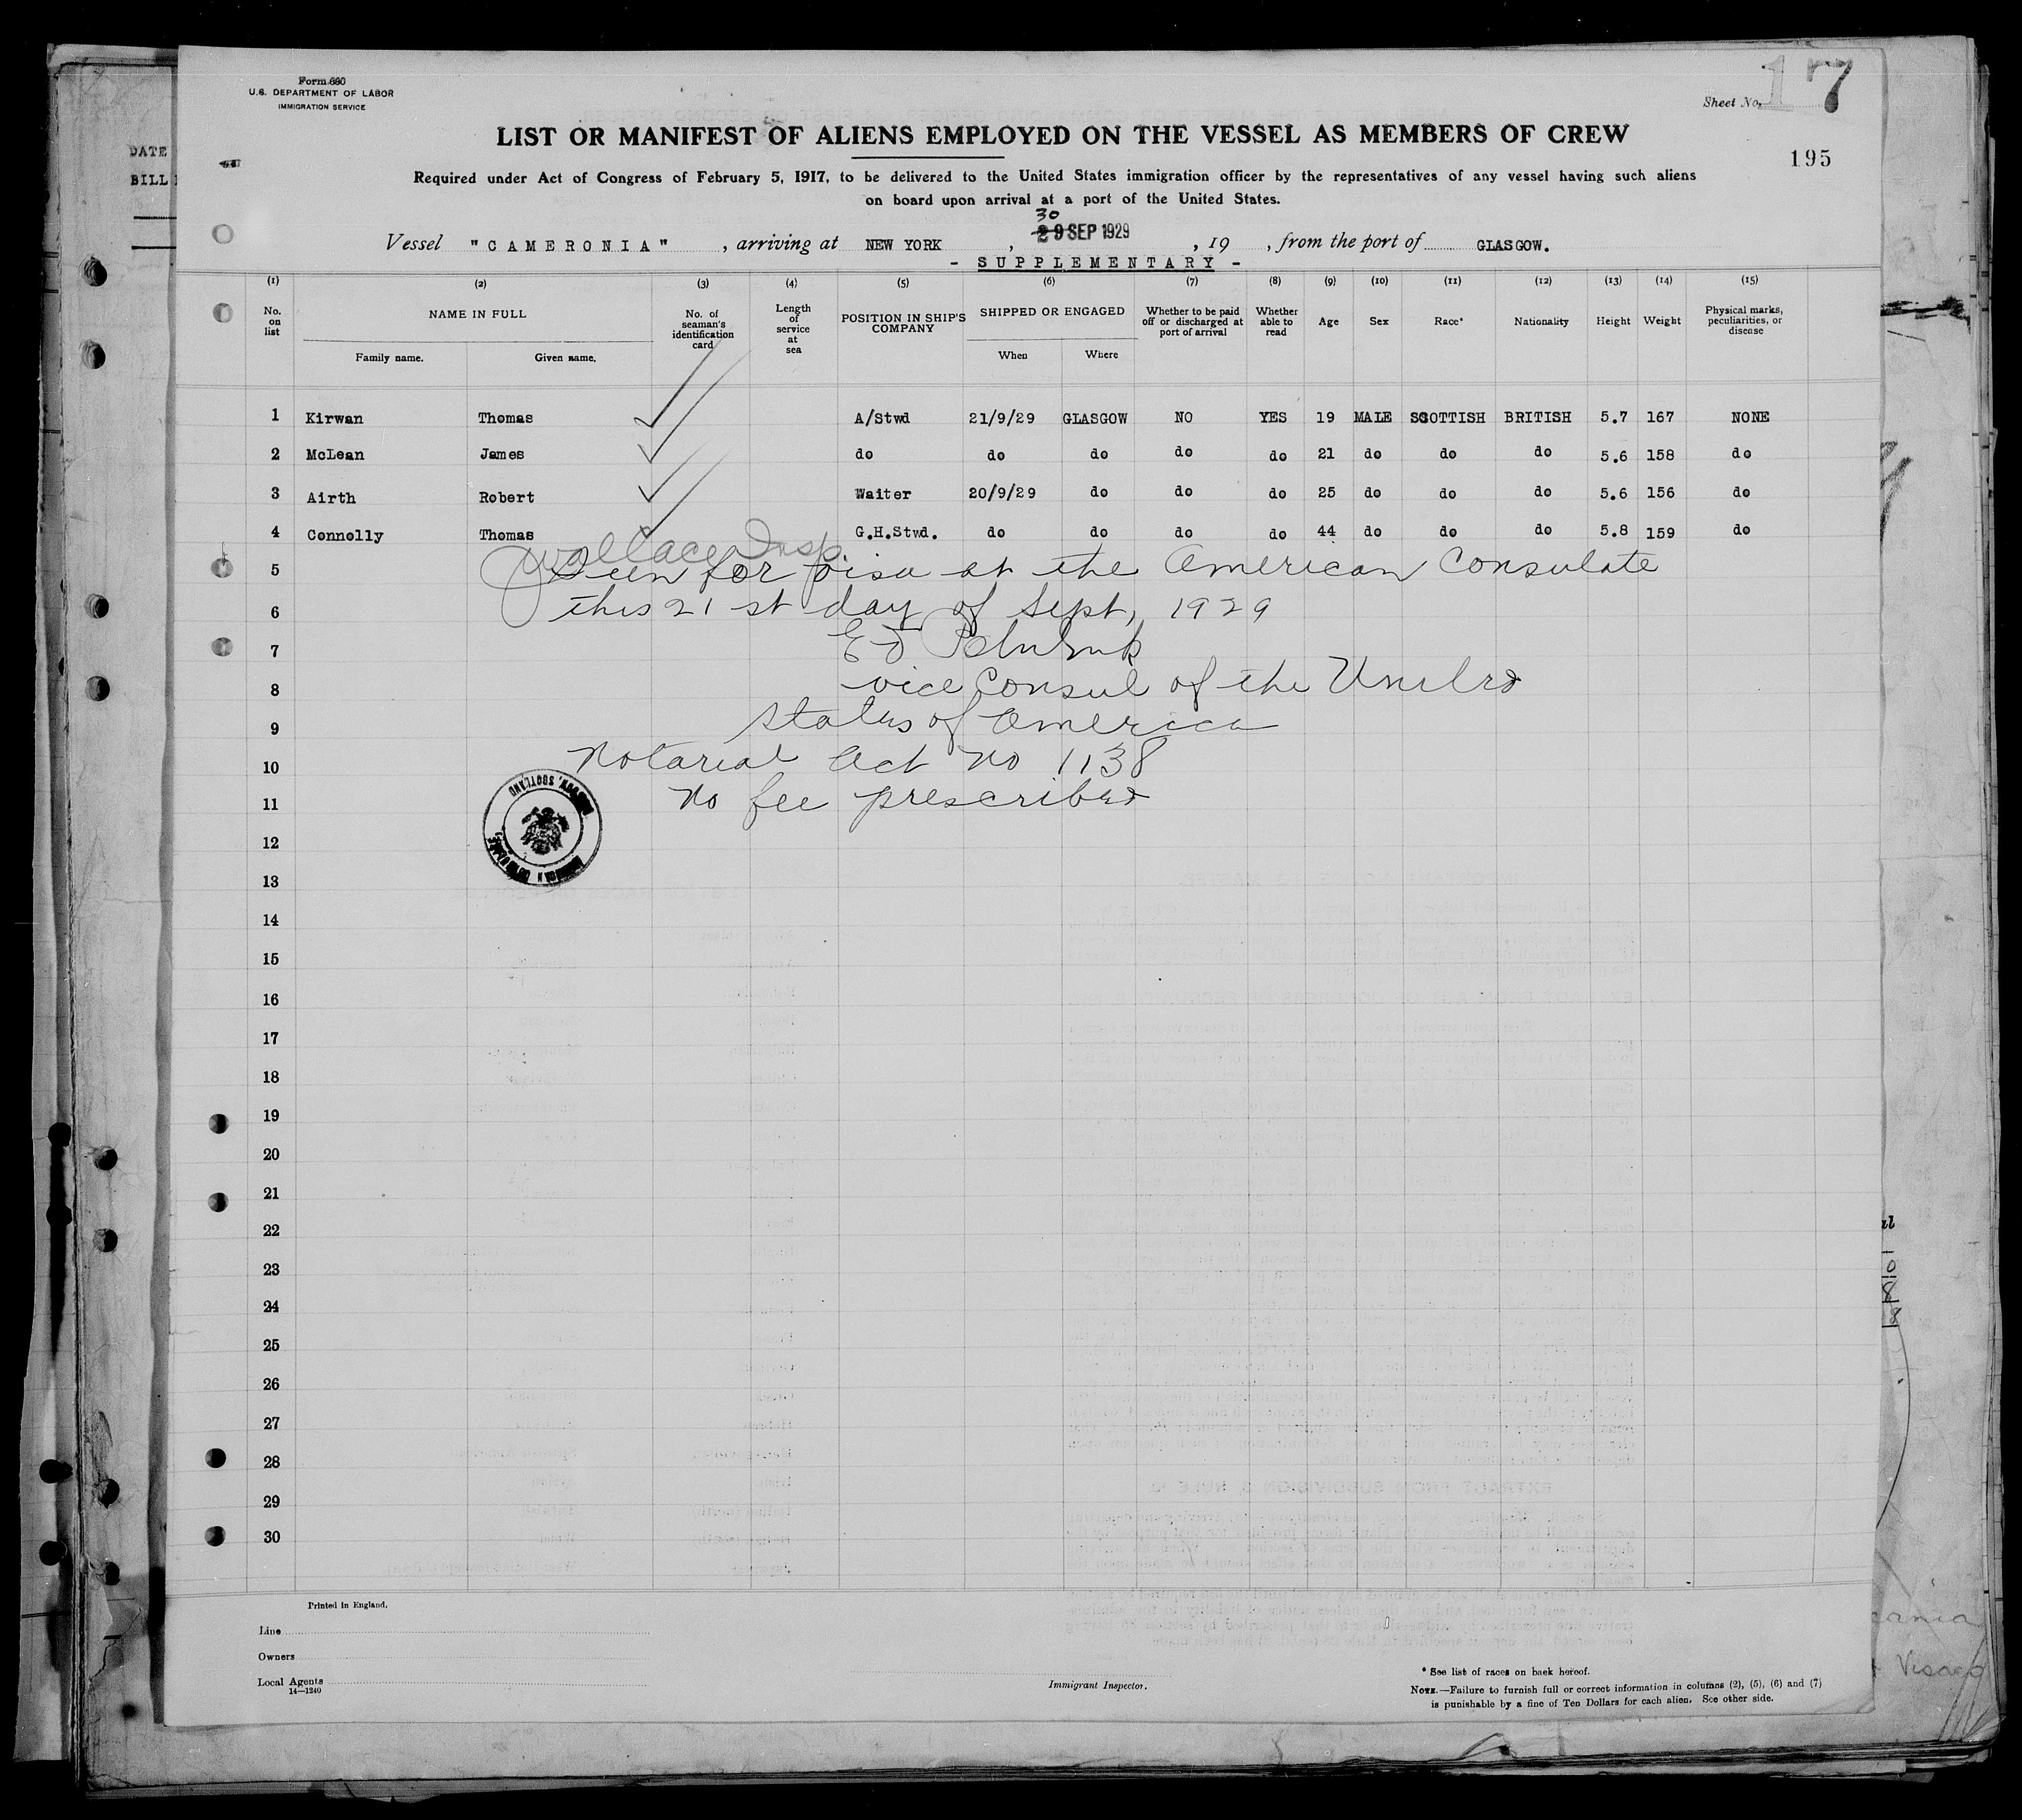 Form 680
U.S. DEPARTMENT OF LABOR
IMMIGRATION SERVICE
Sheet No. 17
195
DATE
BILL
LIST OR MANIFEST OF ALIENS EMPLOYED ON THE VESSEL AS MEMBERS OF CREW
Required under Act of Congress of February 5, 1917, to be delivered to the United States immigration officer by the representatives of any vessel having such aliens
on board upon arrival at a port of the United States.
30
Vessel "CAMERONIA", arriving at NEW YORK, 29 SEP 1929, 19 , from the port of GLASGOW.
- SUPPLEMENTARY -
(1) (2) (3) (4) (5) (6) (7) (8) (9) (10) (11) (12) (13) (14) (15)
No. on list NAME IN FULL Family name. Given name. No. of seaman's identification card Length of service at sea POSITION IN SHIP'S COMPANY SHIPPED OR ENGAGED When Where Whether to be paid off or discharged at port of arrival Whether able to read Age Sex Race* Nationality Height Weight Physical marks, peculiarities, or disease
1 Kirwan Thomas A/Stwd 21/9/29 GLASGOW NO YES 19 MALE SCOTTISH BRITISH 5.7 167 NONE
2 McLean James do do do do do 21 do do do 5.6 158 do
3 Airth Robert Waiter 20/9/29 do do do 25 do do do 5.6 156 do
4 Connolly Thomas G.H.Stwd. do do do do 44 do do do 5.8 159 do
Wallace Insp.
5 Seen for visa at the American Consulate
6 this 21st day of Sept, 1929
7
8 vice Consul of the United
9 States of America
10 Notarial Act No 1138
11 No fee prescribed
12
13
14
15
16
17
18
19
20
21
22
23
24
25
26
27
28
29
30
Printed in England.
Line
Owners
Local Agents
14—1240
Immigrant Inspector.
* See list of races on back hereof.
NOTE.—Failure to furnish full or correct information in columns (2), (5), (6) and (7)
is punishable by a fine of Ten Dollars for each alien. See other side.